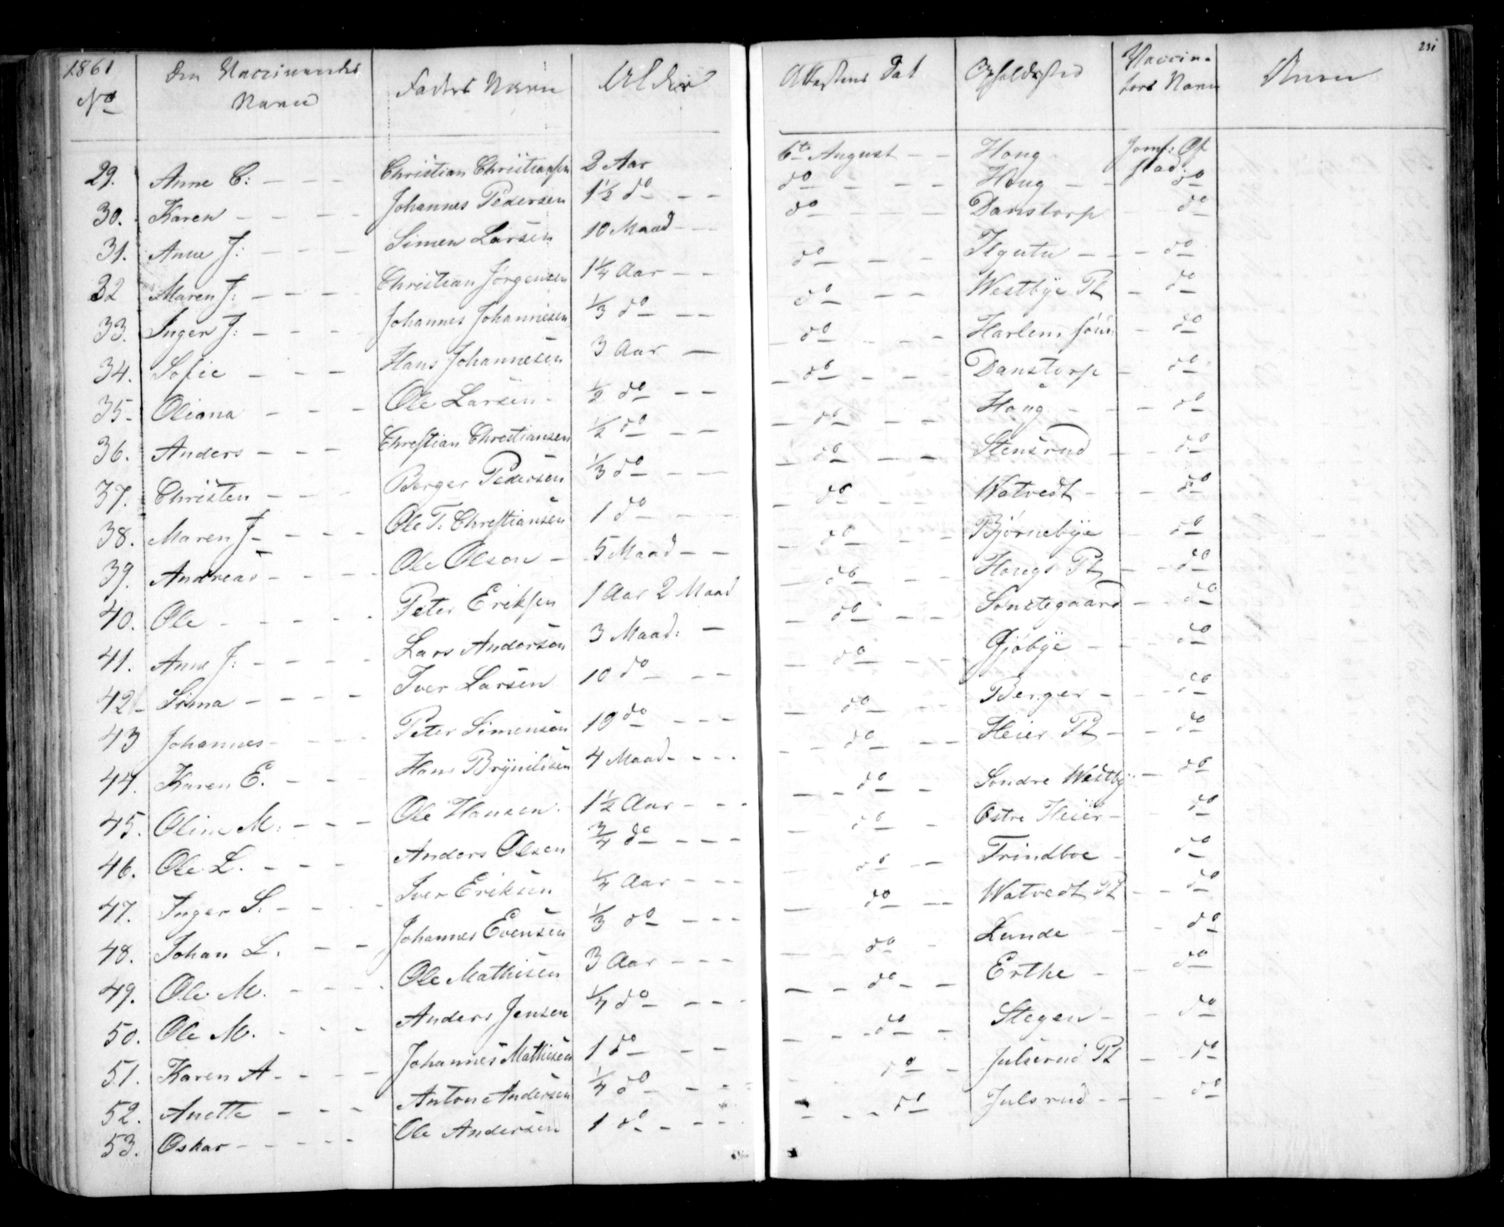 1861 Den Vaccineredes Faders Navn Alder Attestens Dat Opholdsted Vaccina- 231
No Navn tørs Navn Anm
29. Anne C: — — — Christian Christiansen 2 Aar 6te August — — Houg Jomf: Of
stad:
30. Karen — — — — Johannes Pedersen 1½ do — — do — — — Houg — — do
31. Anne J: — — — Simen Larsen 10 Maad — — do — — Danstorp — do
32 Maren J: — — — — Christian Jørgensen 1¼ Aar — — do — — — do
33. Inger J: — — — — Johannes Johannesen ⅓ do — — do — — Westbye Pl — do
34. Sofie — — — Hans Johannesen 3 Aar — do — — do
35. Oliana — — — Ole Larsen — ½ do — — do — — Danstorp — do
36. Anders — — — Christian Christiansen ½ do — — do — — Houg — — do
37. Christen — — — Berger Pedersen ⅓ do — — do — — Stensrud do
38. Maren J — — — Ole T. Christiansen 1 do — — do Watvedt — — do
39. Andreas — — — Ole Olsen — 5 Maad — — do — Bjørnebye do
40. Ole — — — — Peter Eriksen 1 Aar 2 Maad do — — Hougs Pl — do
41. Anne J: — — — — Lars Andersen 3 Maad: — do — — do
42 — — — — Iver Larsen 10 do — — do — Gjøbye — — do
43 Johannes — — — Peter Simensen 10 do — — — do — Berger — — do
44. Karen E. — — — Hans 4 Maad — — — do — — Heier Pl — do
45. Oline M: — — — Ole Hansen 1½ Aar — — — do — — Søndre Westby — do
46. Ole L. — — Anders Olsen ¾ do — — — do — Østre Heier — do
47. Inger S. — — — Iver Eriksen ¼ Aar — — — do — Trindboe — do
48. Johan L. — — Johannes Evensen ⅓ do — — — do — — Watvedt Pl — — do
49. Ole M. — — — Ole Mathisen 3 Aar — — — do — Lunde — do
50. Ole M. — — — Anders Jensen ¼ do — — — do — Erthe — — do
51. Karen A — — — — Johannes Mathisen 1 do — — do — Stegen — — do
52. Anette — — — Anton Andersen ¼ do — — — do — Julsrud Pl — do
53. Oskar — — — — Ole Andersen 1 do — — — do — Julsrud — — — do